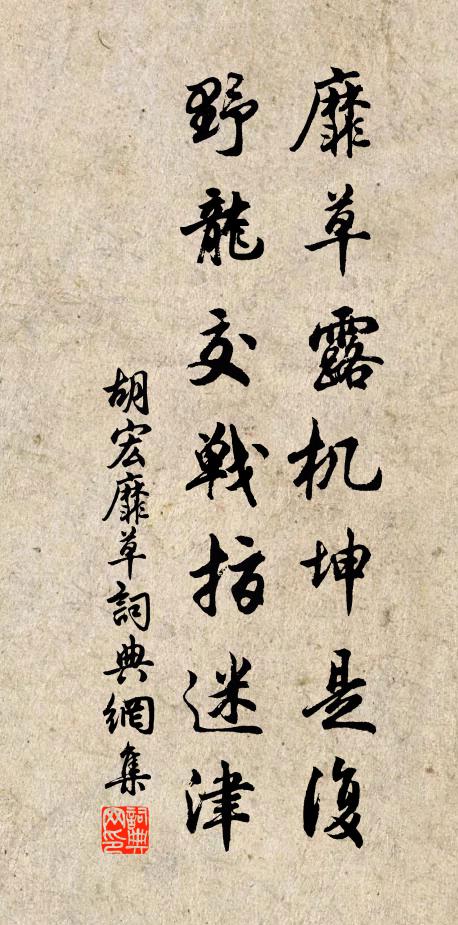 靡草露机坤是復
野龍交戰指迷津
胡宏靡草詞典網集
詞典網印